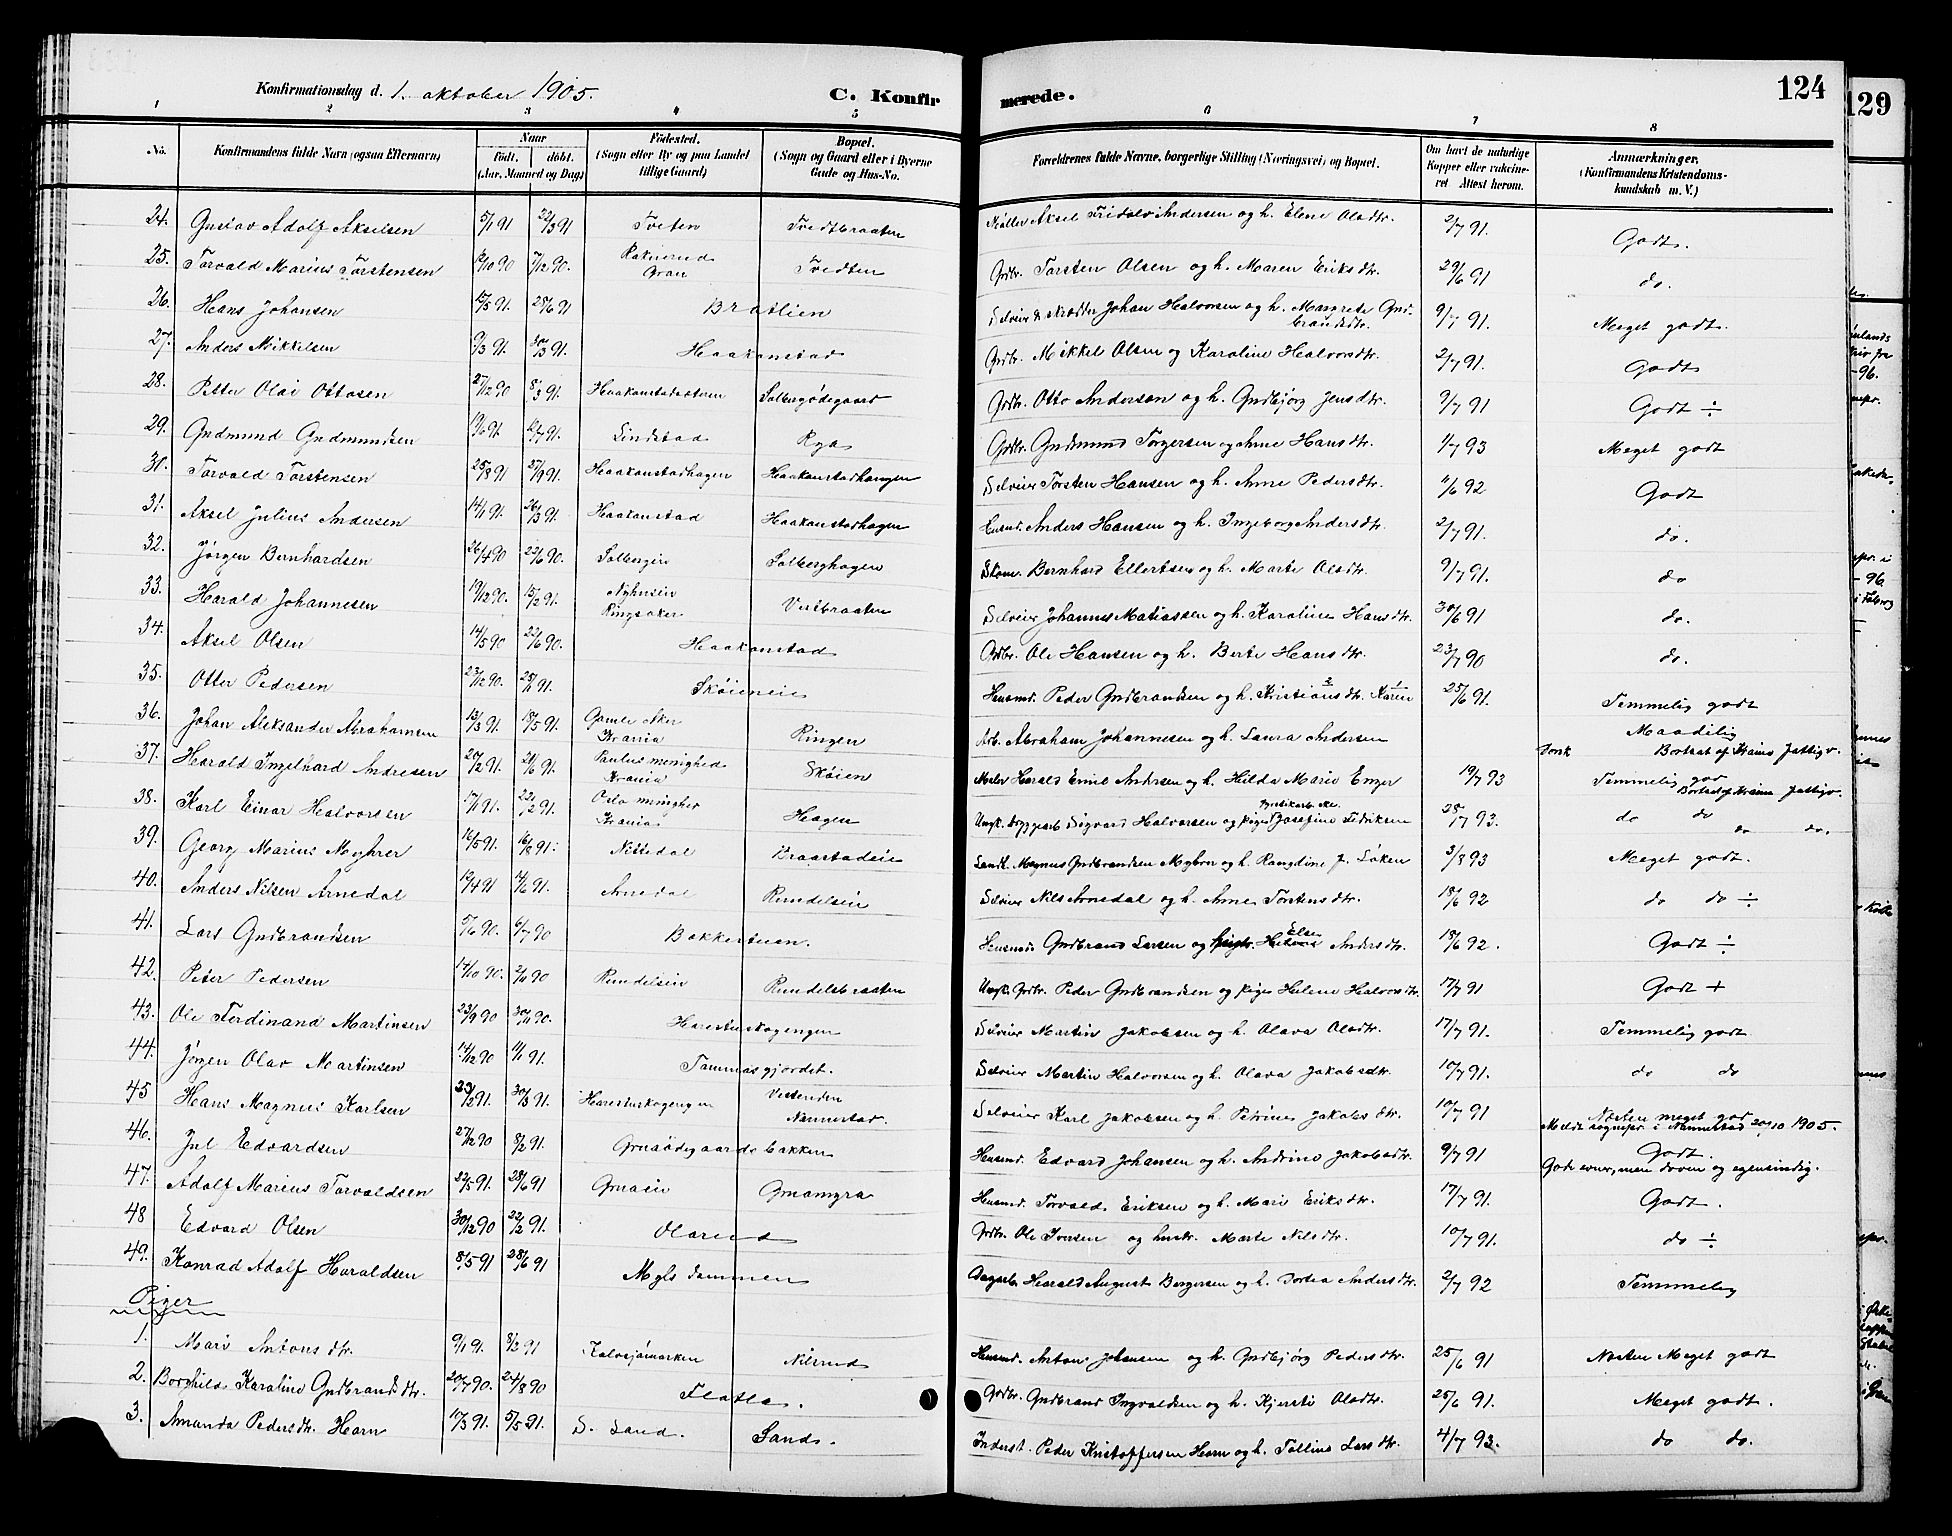 124
129
Konfirmationsdag d. 1. oktober 1905.
C. Konfirmerede.
1 2 3 4 5 6 7 8
No. Konfirmandens fulde Navn (ogsaa Efternavn) Naar födt. döbt. (Aar, Maaned og Dag) Födested. (Sogn eller By og paa Landet tillige Gaard) Bopæl. (Sogn og Gaard eller i Byerne Gade og Hus-No. Forældrenes fulde Navne, borgerlige Stilling (Næringsvei) og Bopæl. Om havt de naturlige Kopper eller vakcineret Attest herom. Anmærkninger. (Konfirmandens Kristendomskundskab m. V.)
24. Gustav Adolf Akselsen 5/1 91 22/3 91 Tveten Tvedtbraaten Aksel Fridolv Andersen og h. Elene Olsdtr. 2/7 91. Godt.
25. Torvald Marius Torstensen 12/10 90 7/12 90. Raknerud Gran Tvedten Grdbr. Torsten Olsen og h. Maren Eriksdtr. 29/6 91 do.
26. Hans Johansen 15/5 91. 28/6 91 Bratlien Selveier & skrædder Johan Halvorsen og h. Margrete Gudbrandsdtr. 9/7 91. Meget godt.
27. Anders Mikkelsen 9/3 91. 30/3 91. Haakonstad Grdbr. Mikkel Olsen og Karoline Halvorsdtr. 2/7 91. Godt
28. Petter Olai Ottosen 27/12 90 8/3 91. Haakonstadeteren Solbergödegaard Grdbr. Otto Anderson og h. Gudbjørg Jensdtr. 9/7 91 Godt ÷
29. Gudmund Gudmundsen 13/6 91. 12/7 91. Lindstad Rya Grdbr. Gudmund Torgersen og Anne Hansdtr. 1/7 93 Meget godt
30. Torvald Torstensen 25/8 91 27/9 91. Haakonstadhagen Haakonstadhaugen Selveier Torsten Hansen og h. Anne Pedersdtr. 11/6 92 Godt
31. Aksel Julius Andersen 14/1 91. 26/3 91. Haakonstad Haakonstadhagen Husmd. Anders Hansen og h. Ingeborg Andersdtr. 2/7 91. do.
32. Jørgen Bernhardsen 26/4 90 22/6 90. Solbergeie Solberghagen Skom. Bernhard Ellertsen og h. Marte Olsdtr. 9/7 91. do
33. Harald Johannesen 19/12 90 15/2 91. Nyhusein Ringsaker Vestbraaten Selveier Johannes Matiassen og h. Karoline Hansdtr. 30/6 91 do.
34. Aksel Olsen 14/5 90 22/6 90. Haakonstad Grdbr. Ole Hansen og h. Berte Hansdtr. 23/7 90 do.
35. Otter Pedersen 23/12 90. 25/1 91. Skøieneie Husmd. Peder Gudbrandsen og h. Kristiansdtr. Karen 25/6 91. Temmelig godt
36. Johan Aleksander Abrahamsen 13/3 91. 18/5 91. Gamle Aker Krania Ringen Arb. Abraham Johannesen og h. Laura Andersen Maadelig Bortsat af Krania Fattigv.
37. Harald Ingelhard Andresen 20/2 91. 21/6 91. Paulus menighed Krania Skøien Maler Harald Emil Andresen og h. Hilda Marie Enger 19/7 93 Temmelig god Bortsat af Krania Fattigv.
38. Karl Einar Halvorsen 17/1 91. 22/2 91. Oslo menighed Krania Hagen Ungk. Bryggearb Sigvard Halvorsen og pige Josefine Fredriksen 28/7 93. do do do do.
39. Georg Marius Myhrer 16/5 91. 16/8 91. Nittedal Braastadeie Landh. Magnus Gudbrandsen Myhrer og h. Rangdine f. Løken 3/8 93 Meget godt.
40. Anders Nilsen Arnedal 12/4 91 14/6 91. Arnedal Rundelseie Selveier Nils Arnedal og h. Anne Torstensdtr. 18/6 92 do do ÷
41. Lars Gudbrandsen 5/6 90. 6/7 90 Bakkestuen. Husmand Gudbrand Larsen og Else Andersdtr. 18/6 92. Godt ÷
42. Peter Pedersen 14/10 90. 2/11 90 Rundelsein Rundelsbraaten Ungk. Grdbr. Peder Gudbrandsen og pige Helene Halvorsdtr. 17/7 91 Godt +
43. Ole Ferdinand Martinsen 23/9 90 30/11 90. Harestuskogengen Selveier Martin Jakobsen og h. Olava Olsdtr. 17/7 91. Temmelig godt
44. Jørgen Olav Martinsen 14/12 90 11/1 91. Tommasgjordet. Selveier Martin Halvorsen og h. Olava Jakobsdtr. 10/7 91. do do
45 Hans Magnus Karlsen 23/2 91. 30/3 91. Harestuskogengen Vestenden Nannestad. Selveier Karl Jakobsen og h. Petrine Jakobsdtr. 10/7 91 Næsten meget god Meldt sognepr. i Nannestad 20/10 1905.
46. Jul Edvardsen 27/12 90 8/2 91. Gruaödegaardsbakken Husmd. Edvard Johansen og h. Andrine Jakobsdtr. 9/7 91 Godt. Gode evner, men doven og egensindig.
47. Adolf Marius Torvaldsen 22/5 91. 28/6 91 Gruaeie Gruamyra Husmd. Torvald Eriksen og h. Mari Eriksdtr. 17/7 91. Godt.
48 Edvard Olsen 30/12 90 22/2 91. Olerud Grdbr. Ole Iversen og hustr. Marte Nilsdtr. 10/7 91. do ÷
49. Konrad Adolf Haraldsen 8/5 91 28/6 91 Myls dammen Dagarb. Harald August Bergersen og h. Dortea Andersdtr. 2/7 92 Temmelig
Piger
1. Mari Antonsdtr. 9/1 91. 8/2 91 Kalvsjømarken Nilsrud Husmd. Anton Johansen og h. Gudbjörg Pedersdtr. 25/6 91 Næsten Meget godt
2. Borghild Karoline Gudbrandsdtr. 20/7 90. 24/8 90 Flatla. Grdbr. Gudbrand Ingvaldsen og h. Kjersti Olsdtr. 25/6 91. Meget godt.
3. Amanda Pedersdtr. Horn 10/3 91. 5/5 91. S. Sand. Sand. Inderst. Peder Kristoffersen Horn og h. Tolline Larsdtr. 4/7 93. do do.